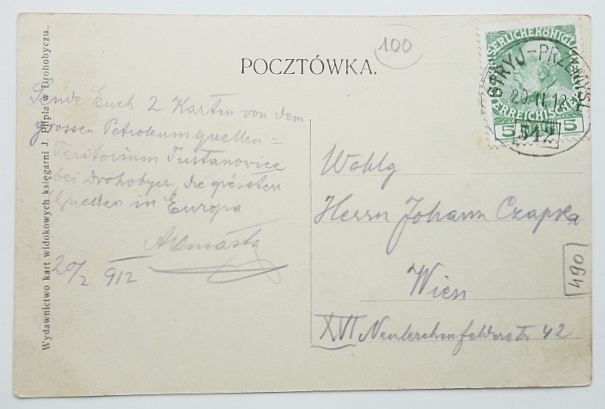 100
POCZTÓWKA.
Sende Euch 2 Karten von dem
grossen Petroleumquellen=
Teritorium Tustanovice
bei Drohobycz, die grössten
Quellen in Europa
20/2 912
Wohlg
Herrn Johann Czapka
Wien
XVI Neulerchenfelderstr 42
490
Wydawnictwo kart widokowych księgarni J. Pilpla w Drohobyczu.
STRYJ-PRZ
20.II.12
519
5 5